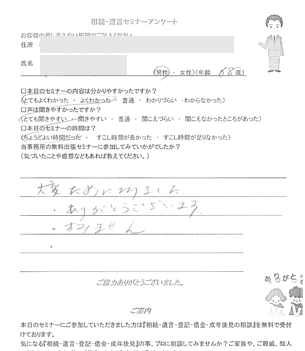 相続・遺言セミナーアンケート
お客様の差し支えない範囲でご記入ください
住所
氏名
(男性・女性)(年齢 68歳)
□本日のセミナーの内容は分かりやすかったですか?
(とてもよくわかった・よくわかった・普通・わかりづらい・わからなかった)
□声は聞きやすかったですか?
(とても聞きやすい・聞きやすい・普通・聞こえづらい・聞こえなかったところがあった)
□本日のセミナーの時間は?
(ちょうどよい時間だった・すこし時間が長かった・すこし時間が足りなかった)
当事務所の無料出張セミナーに参加してみていかがでしたか?
(気づいたことや感想などもあれば教えてください。)
大変ためになりました
・ありがとうございます
・ありません
・
ご協力ありがとうございました。
ありがとう
ご案内
本日のセミナーにご参加していただきました方は『相続・遺言・登記・借金・成年後見の相談』を無料で受け
付けております。
気になる『相続・遺言・登記・借金・成年後見』の事、プロに相談してみませんか?ご家族や、ご親戚、知人